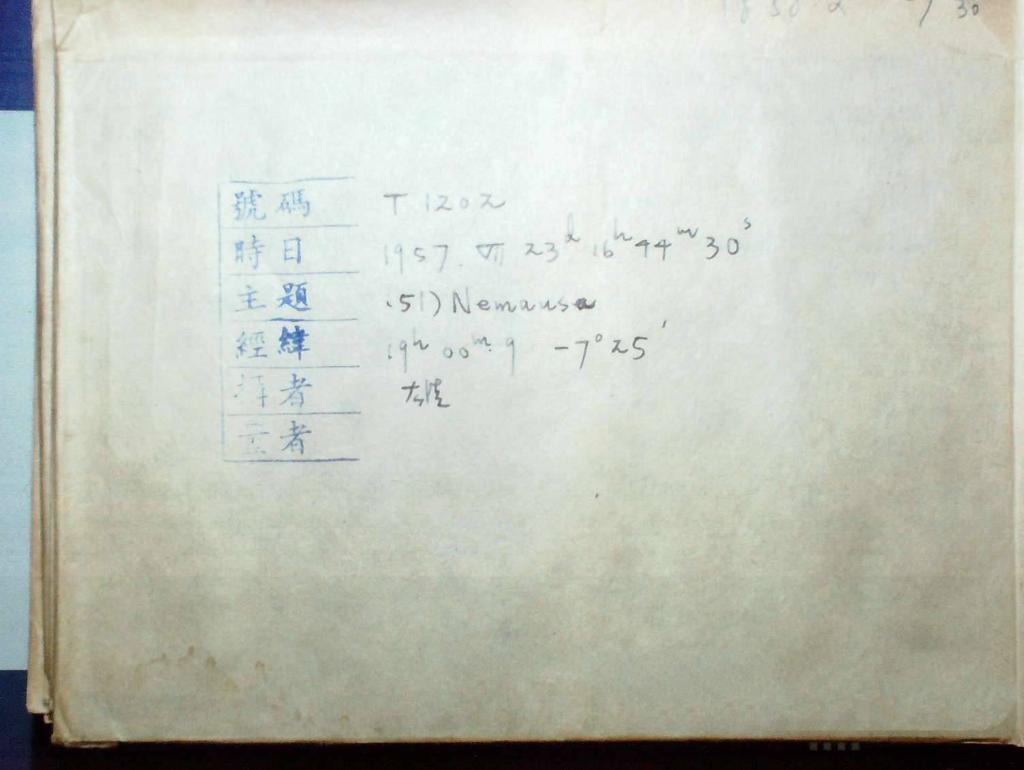 30
號碼 T 1202
時日 1957. VII 23d 16h 44m 30s
主題 (51) Nemausa
經緯 19h 00m.9 -7°25'
者
者